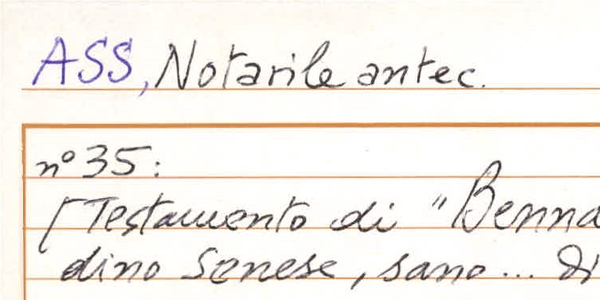 ASS, Notarile antec.
n° 35:
[Testamento di "Benna
dino Senese, sano ... di